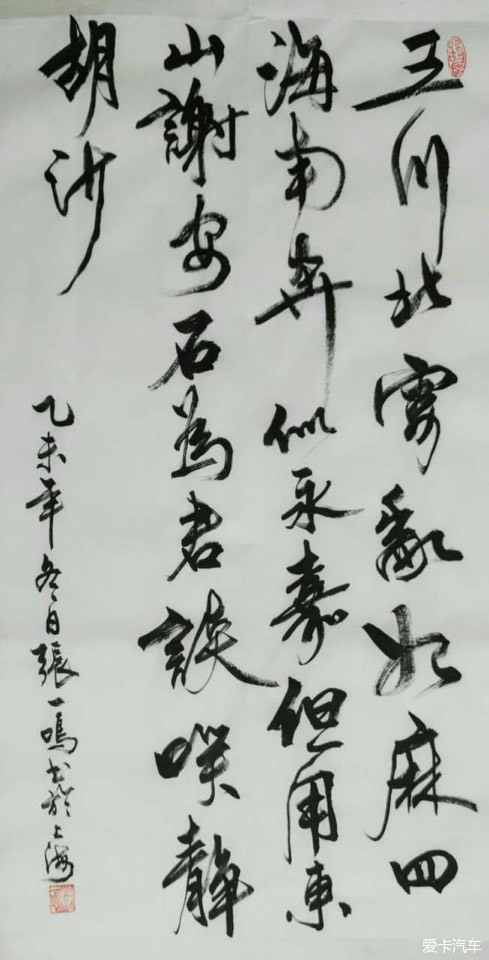 三川北虜亂如麻四
海南奔似永嘉但用東
山謝安石為君談咲靜
胡沙
乙未年冬日張一鳴书於上海
爱卡汽车